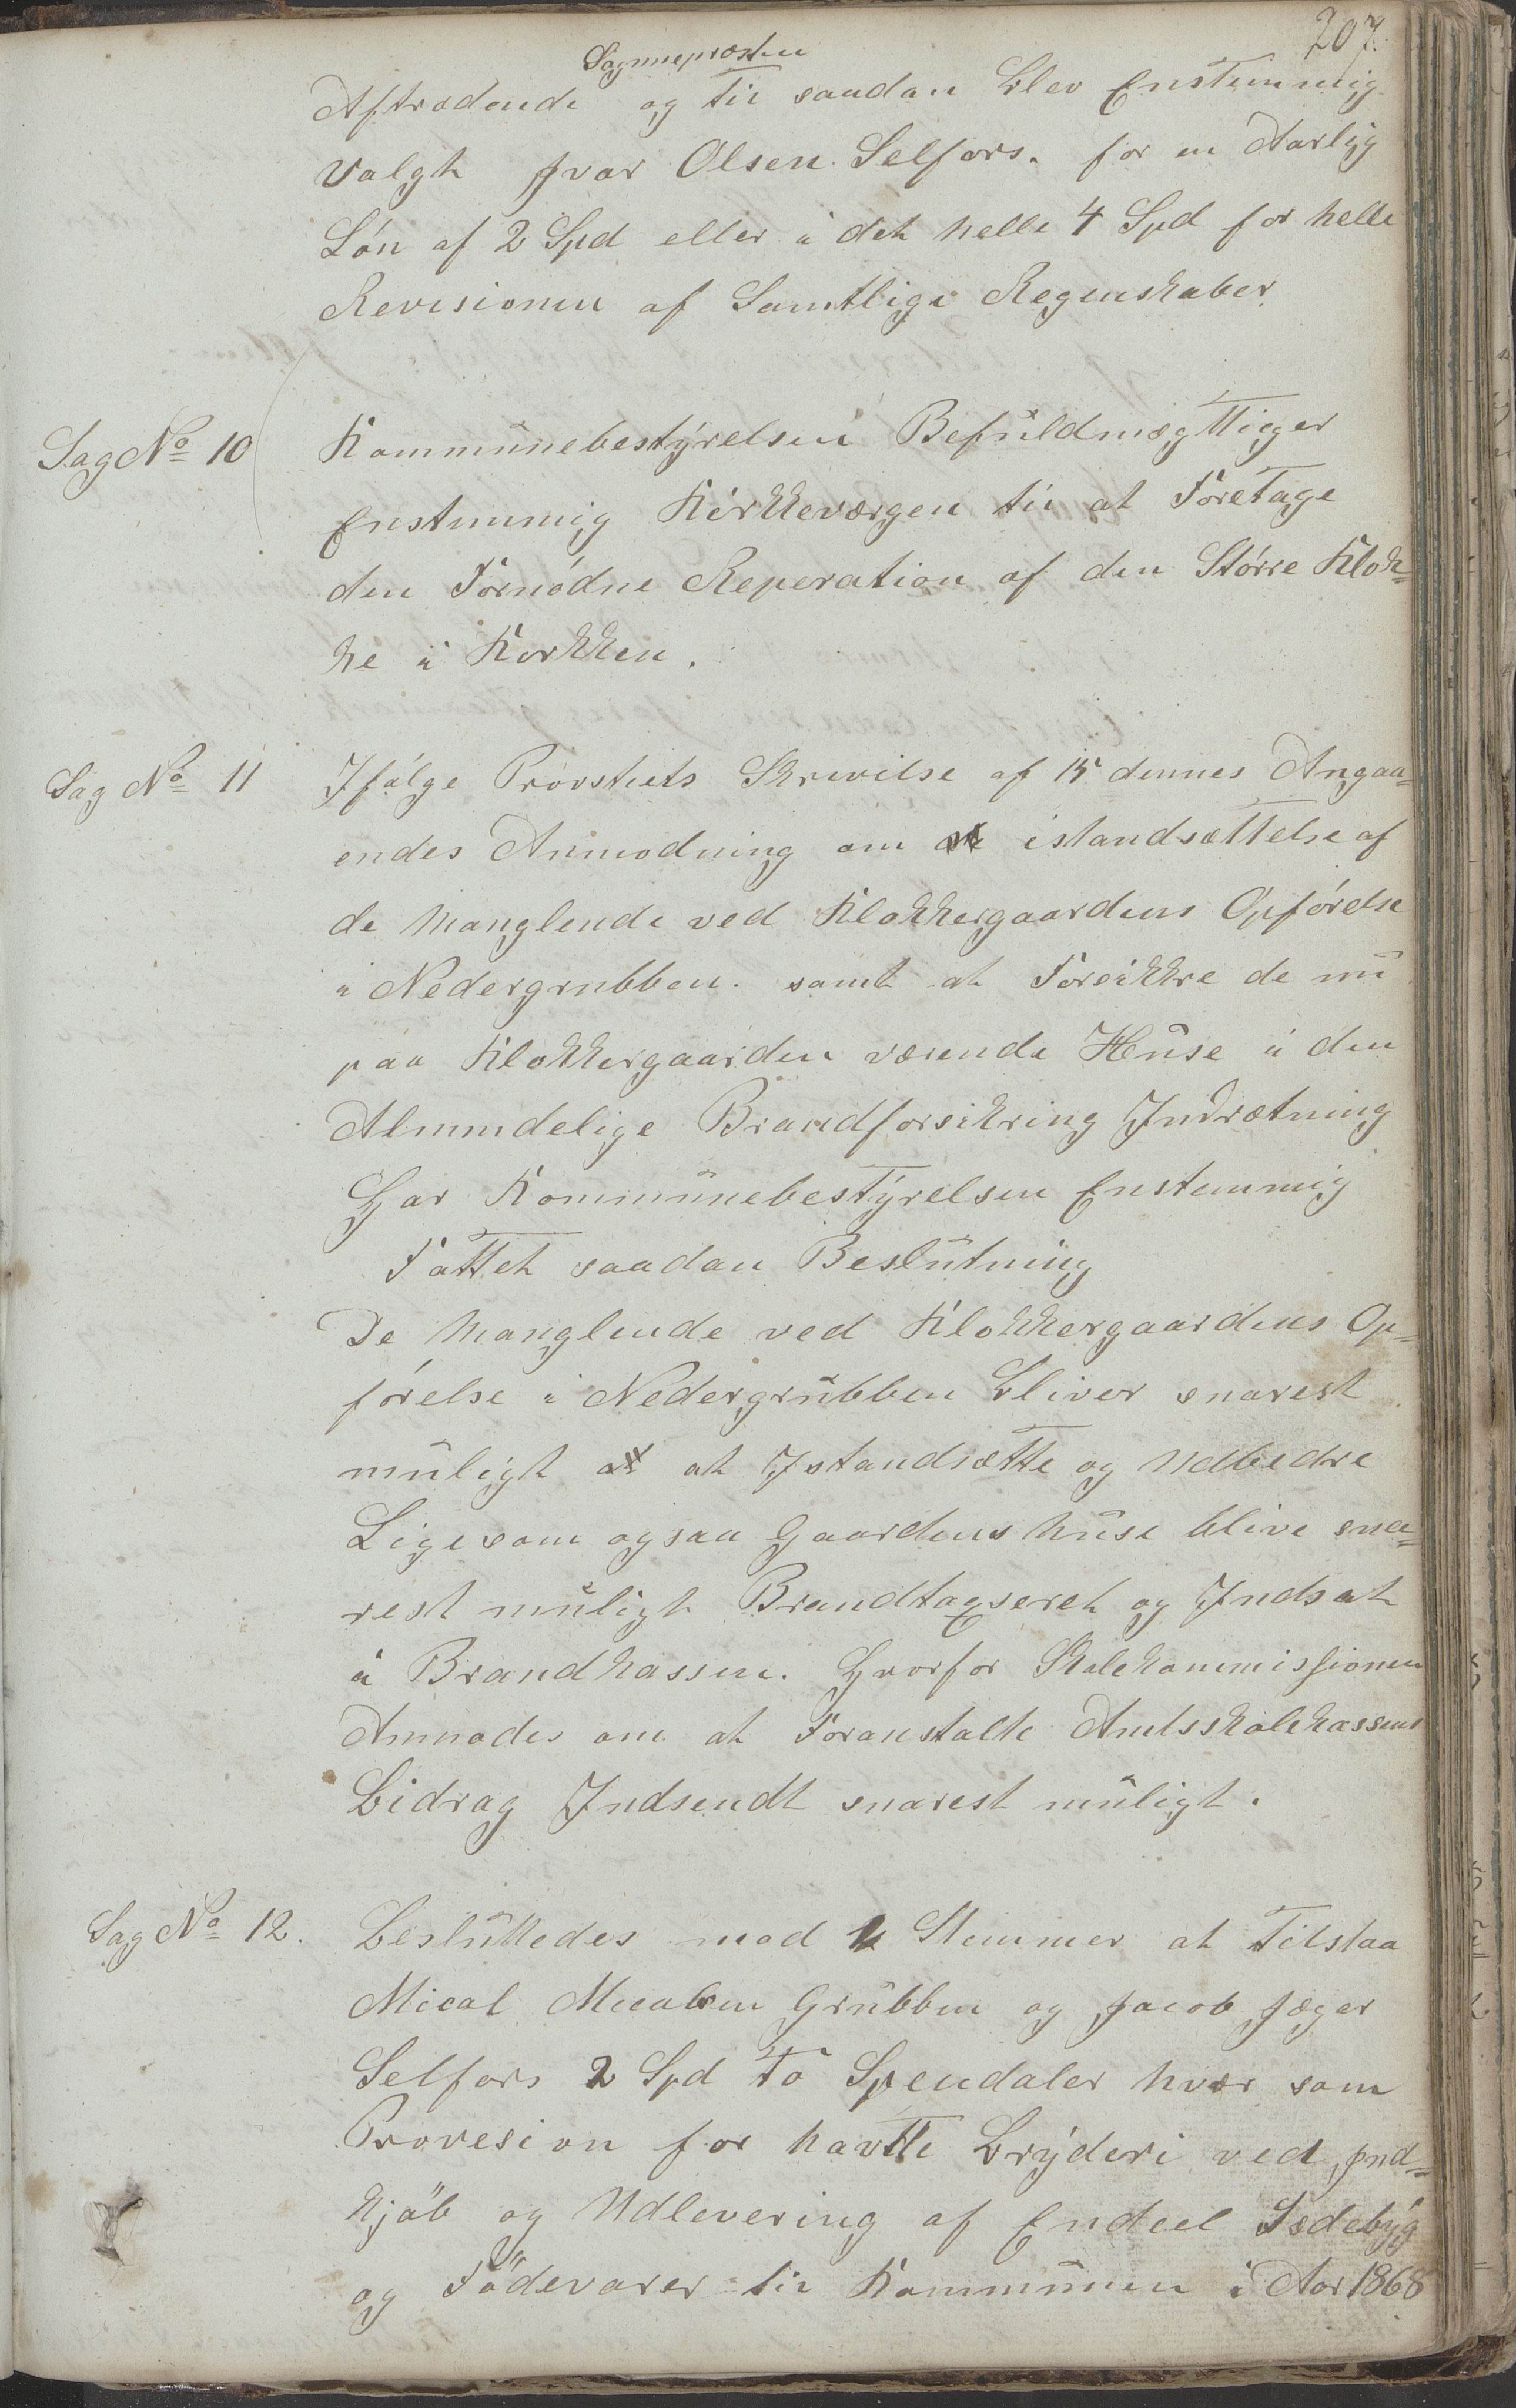 207.
Sognnepræsten
Aftrædende og til saadan blev Enstemmig
Valgt Ivar Olsen Selfors. for en Aarlig
Løn af 2 Spd eller i det helle 4 Spd for helle
Revisionen af Samtlige Regenskaber
Sag No 10
Kommunebestyrelsen Befuldmægttieger
Enstemmig Kirkkeværgen til at Foretage
den Fornødne Reperation af den Større Klok-
ke i Korkken.
Sag No 11
Ifølge Provstiets Skrivelse af 15 dennes Angaa-
endes Anmodning om istandsættelse af
de Manglende ved Klokkergaardens Opførelse
i Nedergrubben. samt at Forsikkre de nu
paa Klokkergaarden værende Huse i den
Almindelige Brandforsikring Indrætning
Har Kommunebestyrelsen Enstemmig
Fattet saadan Beslutning
De Manglende ved Klokkergaardens Op-
førelse i Nedergrubben bliver snarest
muligt at at Istandsætte og Udbedre
Ligesom ogsaa Gaardens huse blive sna-
rest muligt Brandtagseret og Indsat
i Brandkassen. Hvorfor Skolekommissionen
Anmodes om at Foranstalte Amtsskolekassens
Bidrag Indsendt snarest muligt.
Sag No 12.
Besluttedes mod 4 Stemmer at Tilstaa
Mical Micalsen Grubben og Jacob Jæger
Selfors 2 Spd To Spendaler hver som
Provesion for havtte Bryderi ved Ind-
kjøb og Udlevering af Endeel Sædebyg
og Fødevarer til Kommunen i Aar 1868